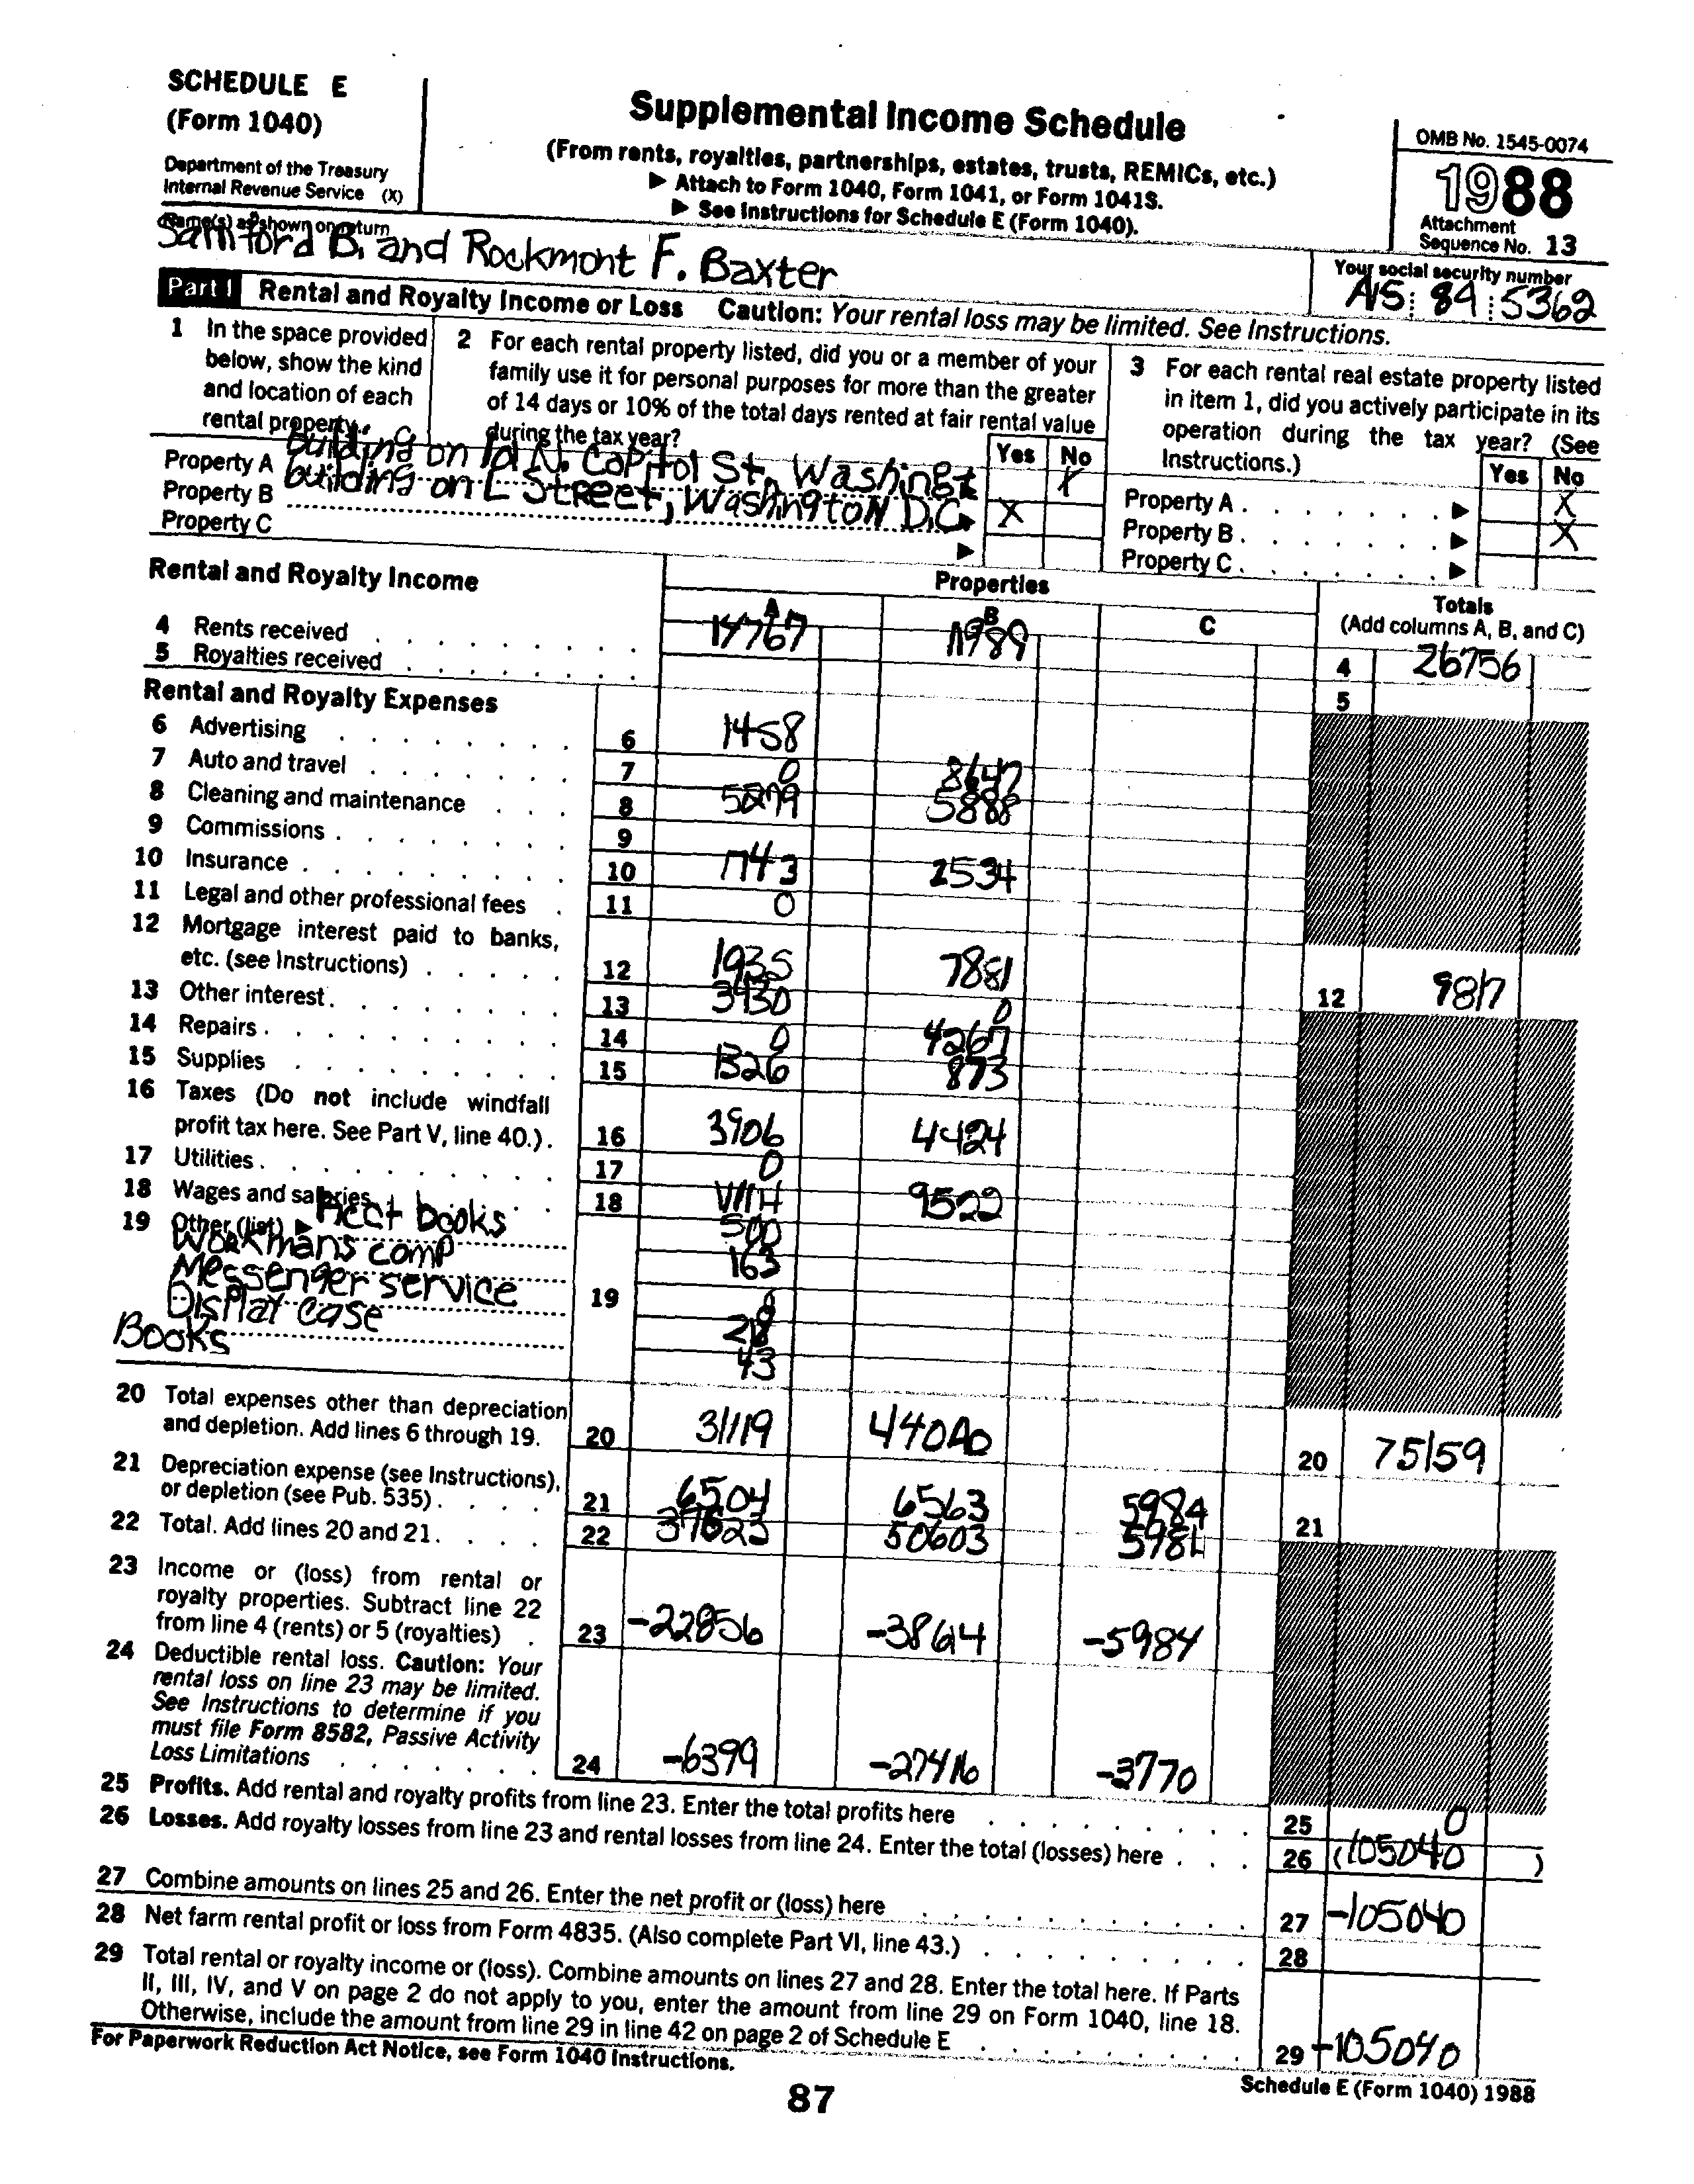 SCHEDULE E
(Form 1040)
Department of the Treasury
Internal Revenue Service (X)
Supplemental Income Schedule
(From rents, royalties, partnerships, estates, trusts, REMICs, etc.)
▶ Attach to Form 1040, Form 1041, or Form 1041S.
▶ See Instructions for Schedule E (Form 1040).
OMB No. 1545-0074
1988
Attachment
Sequence No. 13
Name(s) as shown on return
B. and Rockmont F. Baxter
Your social security number
89 5362
Part I Rental and Royalty Income or Loss Caution: Your rental loss may be limited. See Instructions.
1 In the space provided
below, show the kind
and location of each
rental property.
2 For each rental property listed, did you or a member of your
family use it for personal purposes for more than the greater
of 14 days or 10% of the total days rented at fair rental value
during the tax year?
Yes No
3 For each rental real estate property listed
in item 1, did you actively participate in its
operation during the tax year? (See
Instructions.)
Yes No
Property A building on N. Capitol St, X
Property B building on L Street, Washington D.C. ▶ X
Property C ▶
Property A . . . . . . . ▶ X
Property B . . . . . . . ▶ X
Property C . . . . . . . ▶
Rental and Royalty Income
Properties
A B C
Totals
(Add columns A, B, and C)
4 Rents received 14767 11989 4 26756
5 Royalties received 5
Rental and Royalty Expenses
6 Advertising 6 1458
7 Auto and travel 7 0 8647
8 Cleaning and maintenance 8 5888
9 Commissions 9
10 Insurance 10 1743 2534
11 Legal and other professional fees 11 0
12 Mortgage interest paid to banks,
etc. (see Instructions) 12 1935 7881 12 9817
13 Other interest 13 3430 0
14 Repairs 14 0 4267
15 Supplies 15 1326 873
16 Taxes (Do not include windfall
profit tax here. See Part V, line 40.) 16 3906 4424
17 Utilities 17 0
18 Wages and salaries 18 9522
19 Other (list) ▶ Acct books 500
Workmans comp 163
Messenger service 19
Display case
Books 43
20 Total expenses other than depreciation
and depletion. Add lines 6 through 19. 20 31119 44040 20 75159
21 Depreciation expense (see Instructions),
or depletion (see Pub. 535) 21 6504 6563 5984 21
22 Total. Add lines 20 and 21 22 37623 50603 5984
23 Income or (loss) from rental or
royalty properties. Subtract line 22
from line 4 (rents) or 5 (royalties) 23 -22856 -38614 -5984
24 Deductible rental loss. Caution: Your
rental loss on line 23 may be limited.
See Instructions to determine if you
must file Form 8582, Passive Activity
Loss Limitations 24 -6399 -27416 -3770
25 Profits. Add rental and royalty profits from line 23. Enter the total profits here 25 0
26 Losses. Add royalty losses from line 23 and rental losses from line 24. Enter the total (losses) here 26 (105040)
27 Combine amounts on lines 25 and 26. Enter the net profit or (loss) here 27 -105040
28 Net farm rental profit or loss from Form 4835. (Also complete Part VI, line 43.) 28
29 Total rental or royalty income or (loss). Combine amounts on lines 27 and 28. Enter the total here. If Parts
II, III, IV, and V on page 2 do not apply to you, enter the amount from line 29 on Form 1040, line 18.
Otherwise, include the amount from line 29 in line 42 on page 2 of Schedule E 29 -105040
For Paperwork Reduction Act Notice, see Form 1040 Instructions.
Schedule E (Form 1040) 1988
87